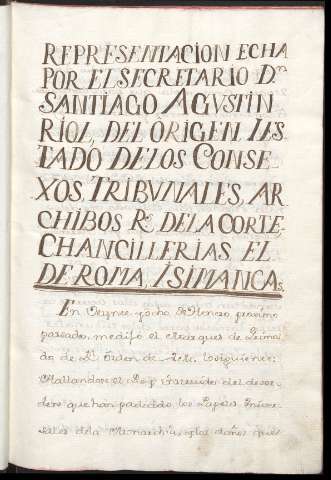 REPRESENTACION ECHA
POR EL SECRETARIO Dn
SANTIAGO AGVSTIN
RIOL, DEL ORIGEN I ES
TADO DE LOS CONSE
XOS, TRIBVNALES, AR
CHIBOS Rs. DE LA CORTE
CHANCILLERIAS EL
DE ROMA, I SIMANCAs.
En Veynte y ocho de Henero proximo
passado, me dijo el
do de Rl. Orden de lo siguiente:
Hallandose el Rey del desor
den que han padecido los Papeles
de la Monarchia, y los daños que